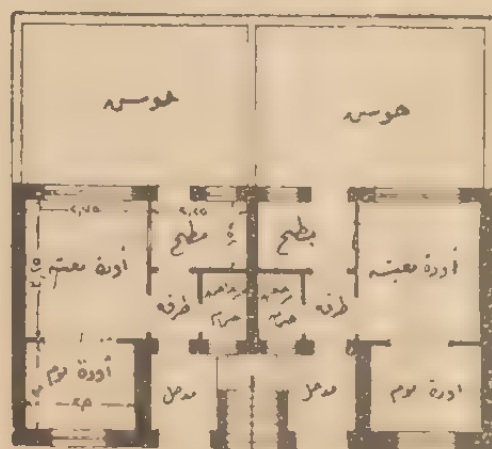 حوش
حوش
مطبخ
مطبخ
أودة معيشه
أودة معيشه
طرقه
طرقه
أودة نوم
مدخل
مدخل
أودة نوم